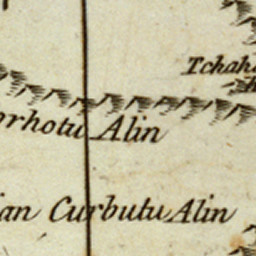 Tchah
orhotu Alin
ian Curbutu Alin